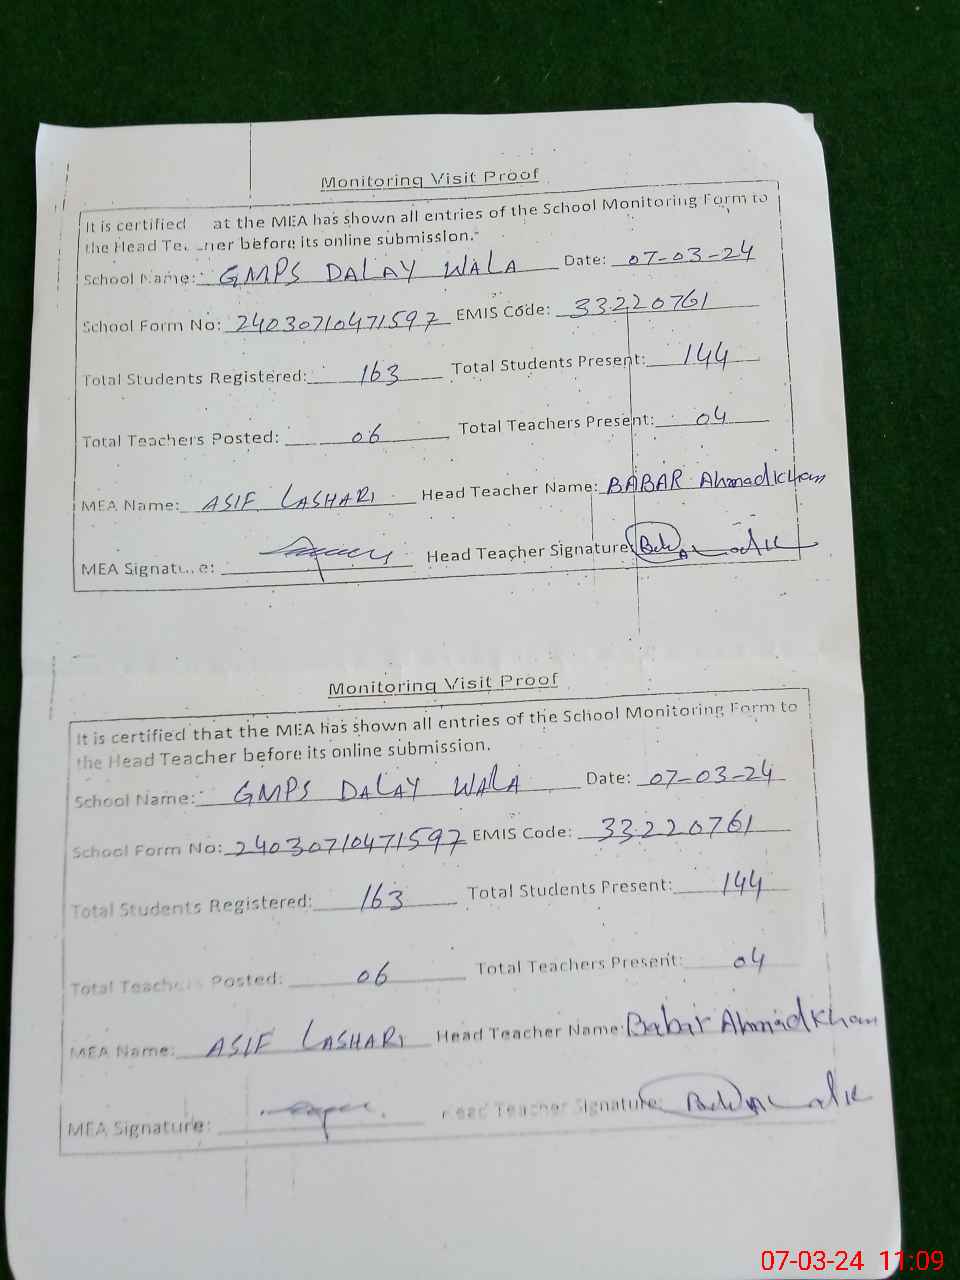 Monitoring Visit Proof
It is certified at the MEA has shown all entries of the School Monitoring Form to
the Head Te. ..ner before its online submission.
School Name: GMPS DALAY WALA Date: 07-03-24
School Form No: 24030710471597 EMIS Code: 33220761
Total Students Registered: 163 Total Students Present: 144
Total Teachers Posted: 06 Total Teachers Present: 04
MEA Name: ASIF LASHARI Head Teacher Name: BABAR Ahmad Khan
MEA Signature: Head Teacher Signature:
Monitoring Visit Proof
It is certified that the MEA has shown all entries of the School Monitoring Form to
the Head Teacher before its online submission.
School Name: GMPS DALAY WALA Date: 07-03-24
School Form No: 24030710471597 EMIS Code: 33220761
Total Students Registered: 163 Total Students Present: 144
Total Teachers Posted: 06 Total Teachers Present: 04
MEA Name: ASIF LASHARI Head Teacher Name: Babar Ahmad Khan
MEA Signature: Head Teacher Signature:
07-03-24 11:09